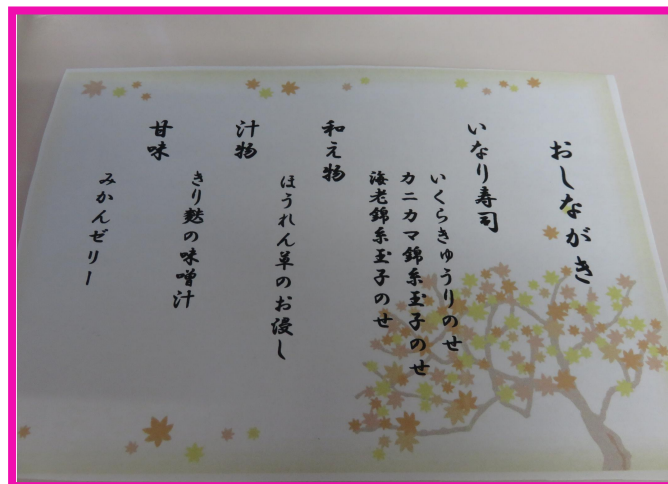 おしながき
いなり寿司
いくらきゅうりのせ
カニカマ錦糸玉子のせ
海老錦糸玉子のせ
和え物
ほうれん草のお浸し
汁物
きり麩の味噌汁
甘味
みかんゼリー